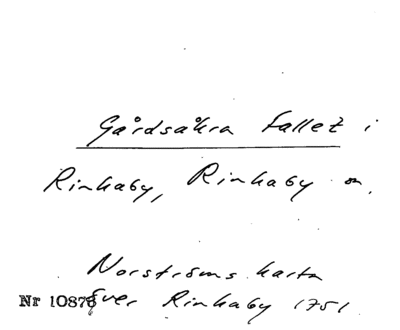 Gårdsåkra Fallet i
Rinkaby, Rinkaby sn.
Norströms karta
Nr 10878 över Rinkaby 1751